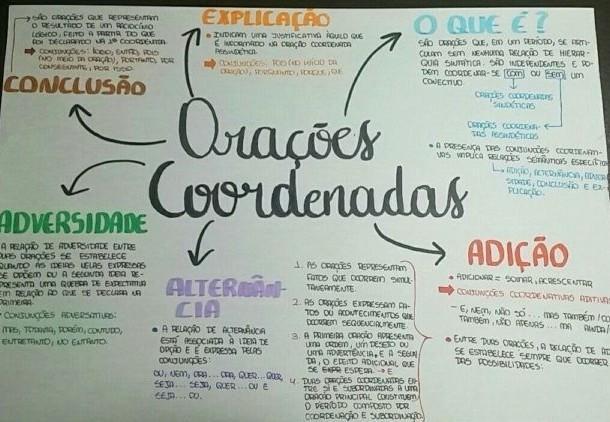 Orações
Coordenadas
→ SÃO ORAÇÕES QUE REPRESENTAM
O RESULTADO DE UM RACIOCÍNIO
LÓGICO, FEITO A PARTIR DO QUE
FOI DECLARADO NA 1ª COORDENADA.
⇒ CONJUNÇÕES: LOGO, ENTÃO, POIS
(NO MEIO DA ORAÇÃO), PORTANTO, POR
CONSEGUINTE, POR ISSO.
CONCLUSÃO
EXPLICAÇÃO
• INDICAM UMA JUSTIFICATIVA ÀQUILO QUE
É INFORMADO NA ORAÇÃO COORDENADA
ASSINDÉTICA.
⇒ CONJUNÇÕES: POIS (NO INÍCIO DA
ORAÇÃO), PORQUANTO, PORQUE, QUE
O QUE É?
SÃO ORAÇÕES QUE, EM UM PERÍODO, SE ARTI-
CULAM SEM NENHUMA RELAÇÃO DE HIERAR-
QUIA SINTÁTICA. SÃO INDEPENDENTES E PO-
DEM COORDENAR-SE COM OU SEM UM
CONECTIVO.
ORAÇÕES COORDENADAS
SINDÉTICAS
ORAÇÕES COORDENA-
DAS ASSINDÉTICAS
• A PRESENÇA DAS CONJUNÇÕES COORDENATI-
VAS IMPLICA RELAÇÕES SEMÂNTICAS ESPECÍFICAS
ADIÇÃO, ALTERNÂNCIA, ADVER
SIDADE, CONCLUSÃO E EX-
PLICAÇÃO.
ADVERSIDADE
A RELAÇÃO DE ADVERSIDADE ENTRE
DUAS ORAÇÕES SE ESTABELECE
QUANDO AS IDEIAS NELAS EXPRESSAS
SE OPÕEM OU A SEGUNDA IDEIA RE-
PRESENTA UMA QUEBRA DE EXPECTATIVA
EM RELAÇÃO AO QUE SE DECLARA NA
PRIMEIRA.
• CONJUNÇÕES ADVERSATIVAS:
MAS, TODAVIA, PORÉM, CONTUDO,
ENTRETANTO, NO ENTANTO.
ALTERNÂN-
CIA
• A RELAÇÃO DE ALTERNÂNCIA
ESTÁ ASSOCIADA À IDEIA DE
OPÇÃO E É EXPRESSA PELAS
CONJUNÇÕES:
OU, NEM, ORA... ORA, QUER... QUER,
SEJA... SEJA, QUER... OU E
SEJA... OU.
1. AS ORAÇÕES REPRESENTAM
FATOS QUE OCORREM SIMUL-
TANEAMENTE.
2. AS ORAÇÕES EXPRESSAM FA-
TOS OU ACONTECIMENTOS QUE
OCORREM SEQUENCIALMENTE.
3. A PRIMEIRA ORAÇÃO APRESENTA
UMA ORDEM, UM DESEJO OU
UMA ADVERTÊNCIA, E A SEGUN
DA, O EFEITO ADICIONAL QUE
SE ESPERA. → E
4. DUAS ORAÇÕES COORDENADAS EN-
TRE SI E SUBORDINADAS A UMA
ORAÇÃO PRINCIPAL CONSTITUEM
O PERÍODO COMPOSTO POR
COORDENAÇÃO E SUBORDINAÇÃO.
ADIÇÃO
• ADICIONAR = SOMAR, ACRESCENTAR
⇒ CONJUNÇÕES COORDENATIVAS ADITIVAS
E, NEM, NÃO SÓ... MAS TAMBÉM/CO
TAMBÉM, NÃO APENAS... MA AINDA
• ENTRE DUAS ORAÇÕES, A RELAÇÃO DE AD
SE ESTABELECE SEMPRE QUE OCORRER
DAS POSSIBILIDADES: